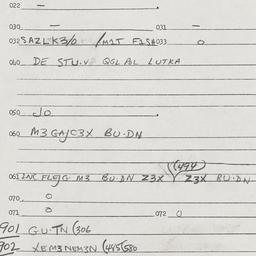 022 —
030 — 031 —
032 SAZLK3/0 /M1T F1SH 033 0
040 DE STU·V QGL AL LUTKA
050 JO
060 M3GAJC3X BU·DN
(494)
061 INC FLEJG M3 BU·DN Z3X Z3X BU·DN
070 0
071 0 072 0
901 GU·TN (306
902 XEM3NEM3N (445(580